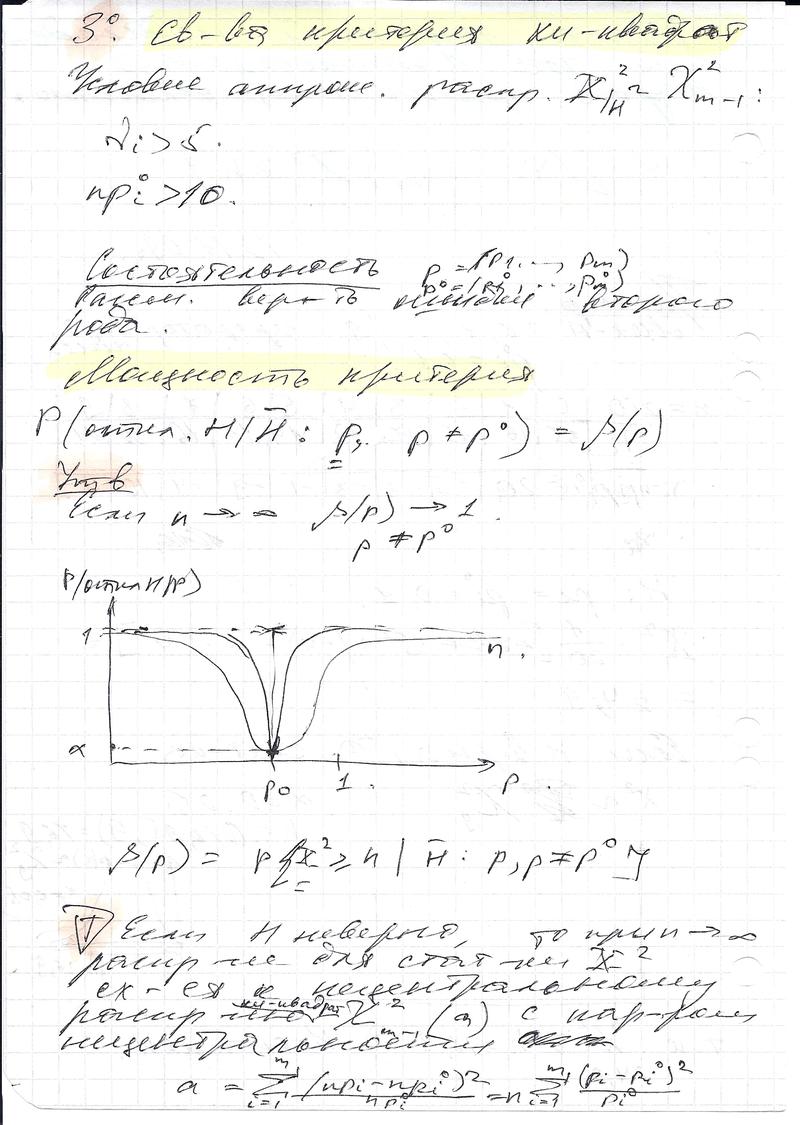 3°. Св-ва критерия хи-квадрат
Условие аппрокс. распр. X²|H ~ χ²m-1 :
νi > 5.
npi° > 10.
Состоятельность p = (p1, ..., pm)
p° = (p1°, ..., pm°)
Рассм. вер-ть ошибки второго
рода.
Мощность критерия
P(откл. H / H̄ : p, p ≠ p°) = β(p)
Утв
Если n → ∞ β(p) → 1.
p ≠ p°
P(откл H/p)
1
n.
α
p0 1. p.
β(p) = P{X² ≥ h | H̄ : p, p ≠ p°}
T Если H неверно, то при n → ∞
распр-ие для стат-ки X²
сх-ся к нецентральному
хи-квадрат
распр-нию χ²m-1 (a) с пар-ром
нецентральности
a = Σ i=1 m (npi - npi°)² / npi° = n Σ i=1 m (pi - pi°)² / pi°